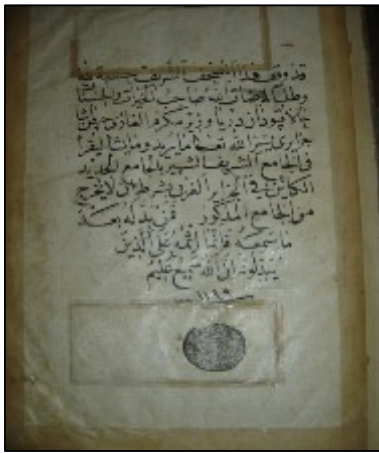 قد وقف هذا المصحف الشريف حسبة لله
وطلبا لمرضاة الله صاحب الخيرات والحسنات
قپودان دريا وزير مكرم الغازي حسن پاشا
جزايرى يسر الله تعالى ما يريد وما يشا ليقرا
فى الجامع الشريف الشهير بالجامع الجديد
الكاين فى الجزاير الغرب وشرط ان لا يخرج
من الجامع المذكور فمن بدله بعد
ما سمعه فانما اثمه على الذين
يبدلونه ان الله سميع عليم
١١٨٩